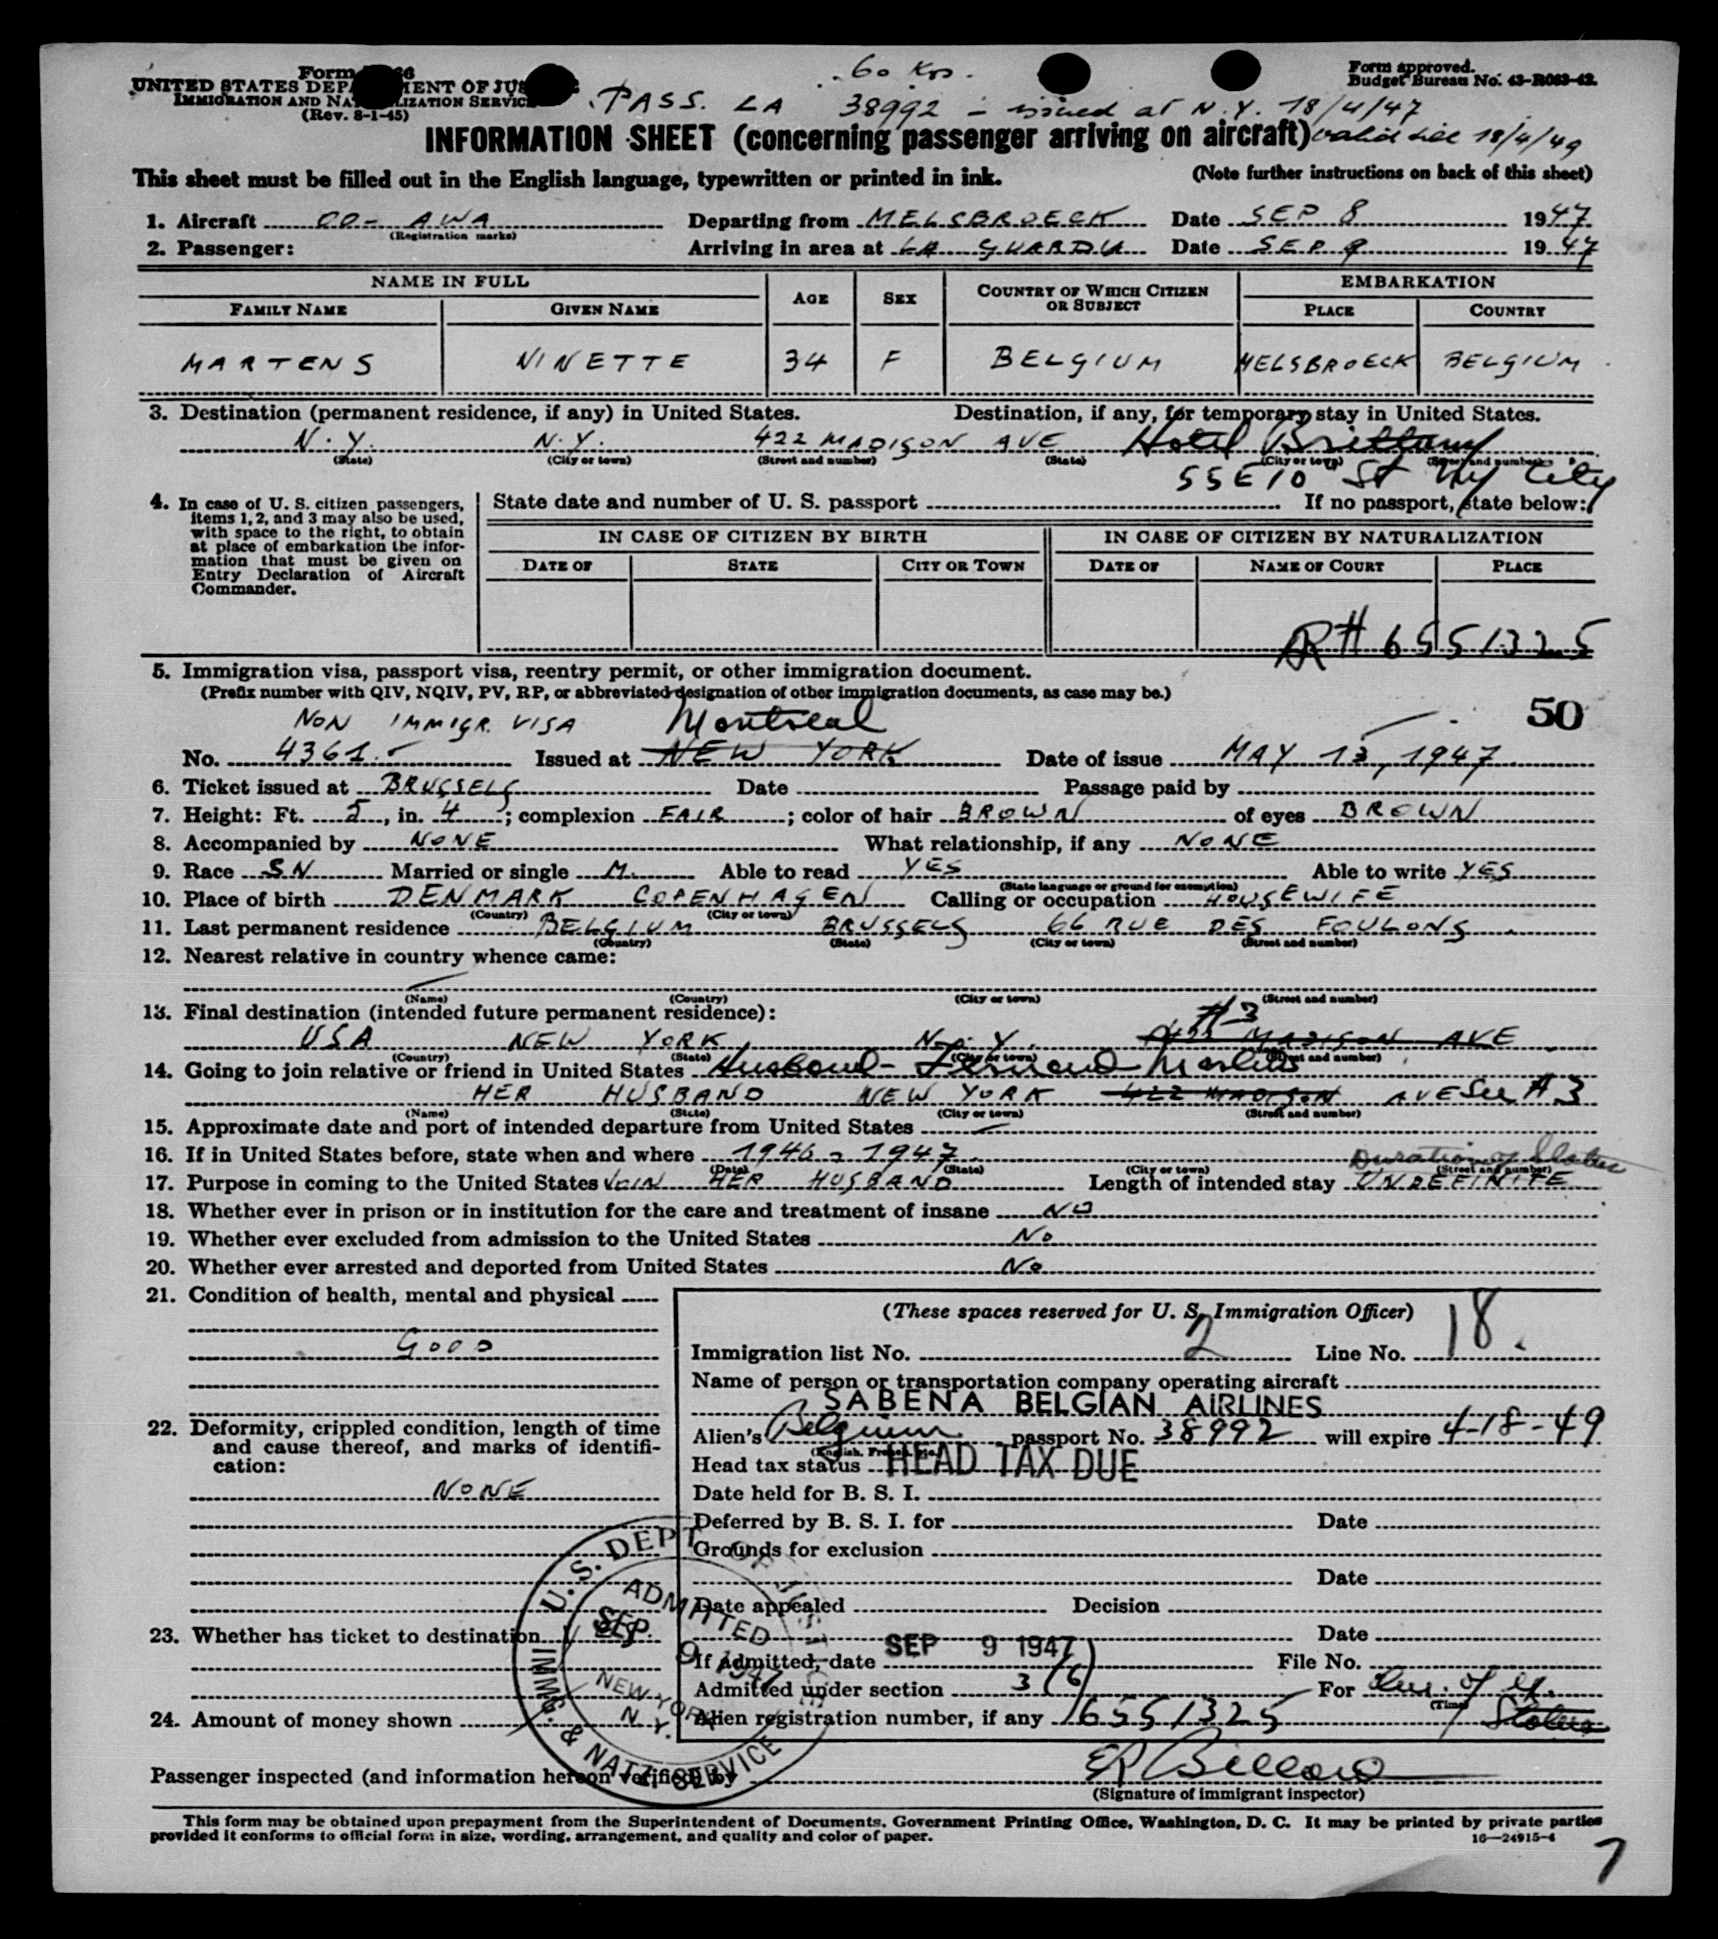 60 Kos.
Form Approved.
UNITED STATES DEPARTMENT OF JUSTICE
Budget Bureau No. 43-R083-42.
IMMIGRATION AND NATURALIZATION SERVICE
(Rev. 8-1-45)
PASS. LA 38992 - issued at N.Y. 18/4/47
valid till 18/4/49
INFORMATION SHEET (concerning passenger arriving on aircraft)
This sheet must be filled out in the English language, typewritten or printed in ink. (Note further instructions on back of this sheet)
1. Aircraft OO-AWA Departing from MELSBROECK Date SEP 8 1947
(Registration marks)
2. Passenger: Arriving in area at LA GUARDIA Date SEP 9 1947
NAME IN FULL AGE SEX COUNTRY OF WHICH CITIZEN OR SUBJECT EMBARKATION
FAMILY NAME GIVEN NAME PLACE COUNTRY
MARTENS NINETTE 34 F BELGIUM MELSBROECK BELGIUM
3. Destination (permanent residence, if any) in United States. Destination, if any, for temporary stay in United States.
N.Y. N.Y. 422 MADISON AVE Hotel Brittany
(State) (City or town) (Street and number) (State) (City or town) (Street and number)
55 E 10 St NY City
4. In case of U. S. citizen passengers, items 1, 2, and 3 may also be used, with space to the right, to obtain at place of embarkation the information that must be given on Entry Declaration of Aircraft Commander.
State date and number of U. S. passport If no passport, state below:
IN CASE OF CITIZEN BY BIRTH IN CASE OF CITIZEN BY NATURALIZATION
DATE OF STATE CITY OR TOWN DATE OF NAME OF COURT PLACE
AR# 6551325
5. Immigration visa, passport visa, reentry permit, or other immigration document.
(Prefix number with QIV, NQIV, PV, RP, or abbreviated designation of other immigration documents, as case may be.)
50
NON IMMIGR. VISA Montreal
No. 4361. Issued at NEW YORK Date of issue MAY 13, 1947
6. Ticket issued at BRUSSELS Date Passage paid by
7. Height: Ft. 5, in. 4; complexion FAIR; color of hair BROWN of eyes BROWN
8. Accompanied by NONE What relationship, if any NONE
9. Race SN Married or single M. Able to read YES Able to write YES
(State language or ground for exemption)
10. Place of birth DENMARK COPENHAGEN Calling or occupation HOUSEWIFE
(Country) (City or town)
11. Last permanent residence BELGIUM BRUSSELS 66 RUE DES FOULONS
(Country) (State) (City or town) (Street and number)
12. Nearest relative in country whence came:
(Name) (Country) (City or town) (Street and number)
13. Final destination (intended future permanent residence):
#3
USA NEW YORK N.Y. 422 MADISON AVE
(Country) (State) (City or town) (Street and number)
14. Going to join relative or friend in United States Husband - Fernand Martens
HER HUSBAND NEW YORK 422 MADISON AVE See #3
(Name) (State) (City or town) (Street and number)
15. Approximate date and port of intended departure from United States
16. If in United States before, state when and where 1946 - 1947
(Date) (State) (City or town) (Street and number)
Duration of Status
17. Purpose in coming to the United States JOIN HER HUSBAND Length of intended stay UNDEFINITE
18. Whether ever in prison or in institution for the care and treatment of insane NO
19. Whether ever excluded from admission to the United States No
20. Whether ever arrested and deported from United States No
21. Condition of health, mental and physical
GOOD
22. Deformity, crippled condition, length of time and cause thereof, and marks of identification:
NONE
23. Whether has ticket to destination
24. Amount of money shown
(These spaces reserved for U. S. Immigration Officer)
Immigration list No. 2 Line No. 18.
Name of person or transportation company operating aircraft
SABENA BELGIAN AIRLINES
Alien's Belgium passport No. 38992 will expire 4-18-49
(English, French, etc.)
Head tax status HEAD TAX DUE
Date held for B. S. I.
Deferred by B. S. I. for Date
Grounds for exclusion
Date
Date appealed Decision
Date
If Admitted, date SEP 9 1947 File No.
Admitted under section 3(6) For Dur. of
(Time)
Status
Alien registration number, if any 6551325
U. S. DEPT. OF JUSTICE
ADMITTED
SEP. 9 1947
NEW YORK
N. Y.
IMMG. & NATZ. SERVICE
Passenger inspected (and information hereon verified) by
(Signature of immigrant inspector)
This form may be obtained upon prepayment from the Superintendent of Documents, Government Printing Office, Washington, D. C. It may be printed by private parties
provided it conforms to official form in size, wording, arrangement, and quality and color of paper. 16—24915-4
7